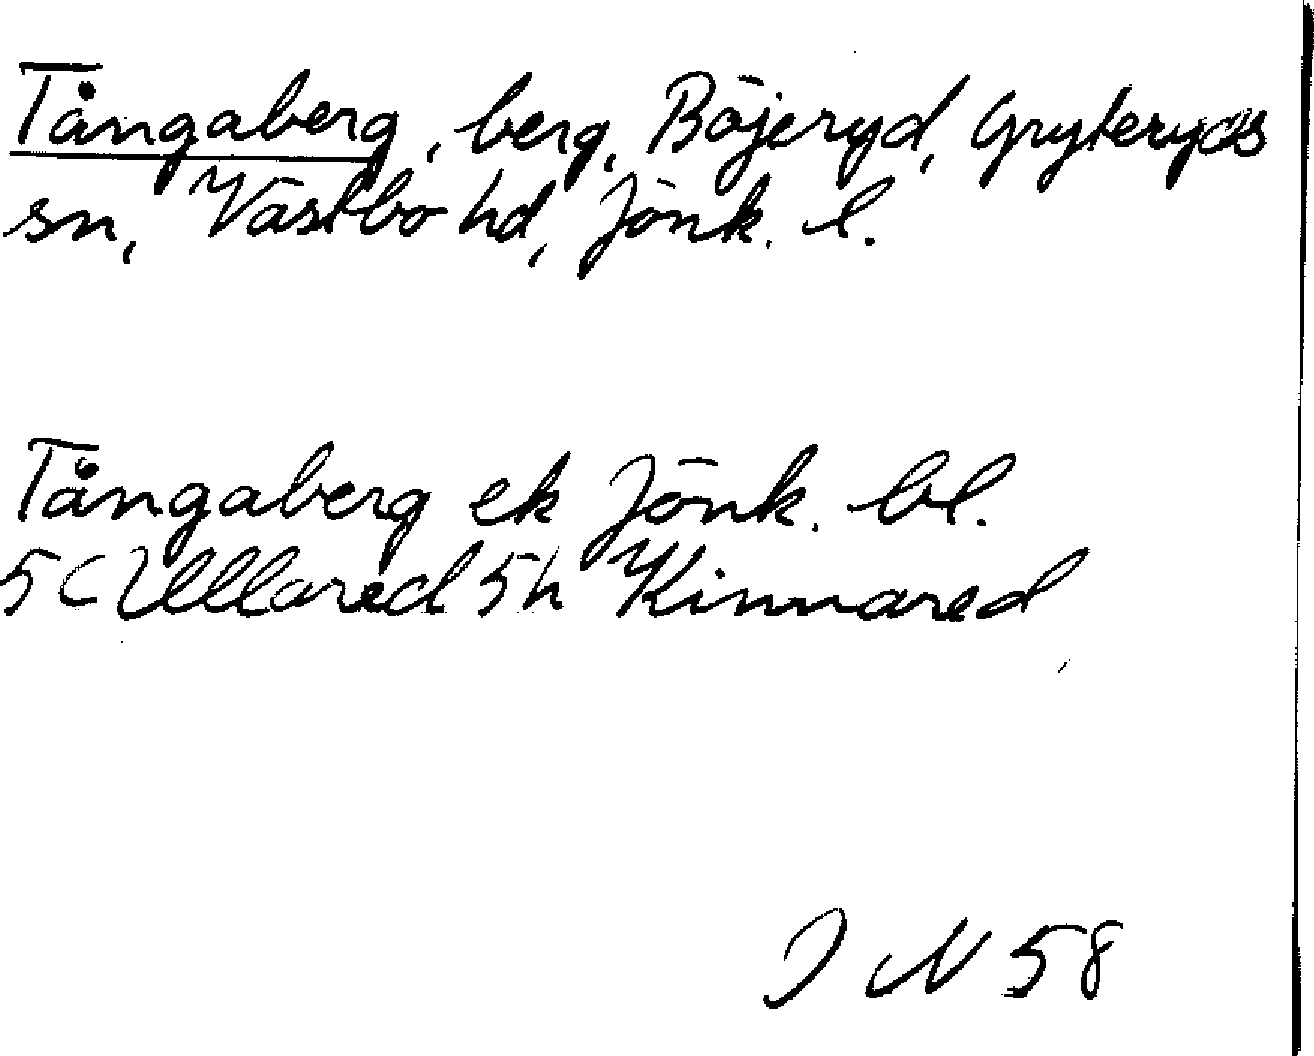 Tångaberg, berg, Böjeryd, Gryteryds
sn, Västbo hd, Jönk. l.
Tångaberg ek Jönk. bl.
5C Ullared 5h Kinnared
J N 58